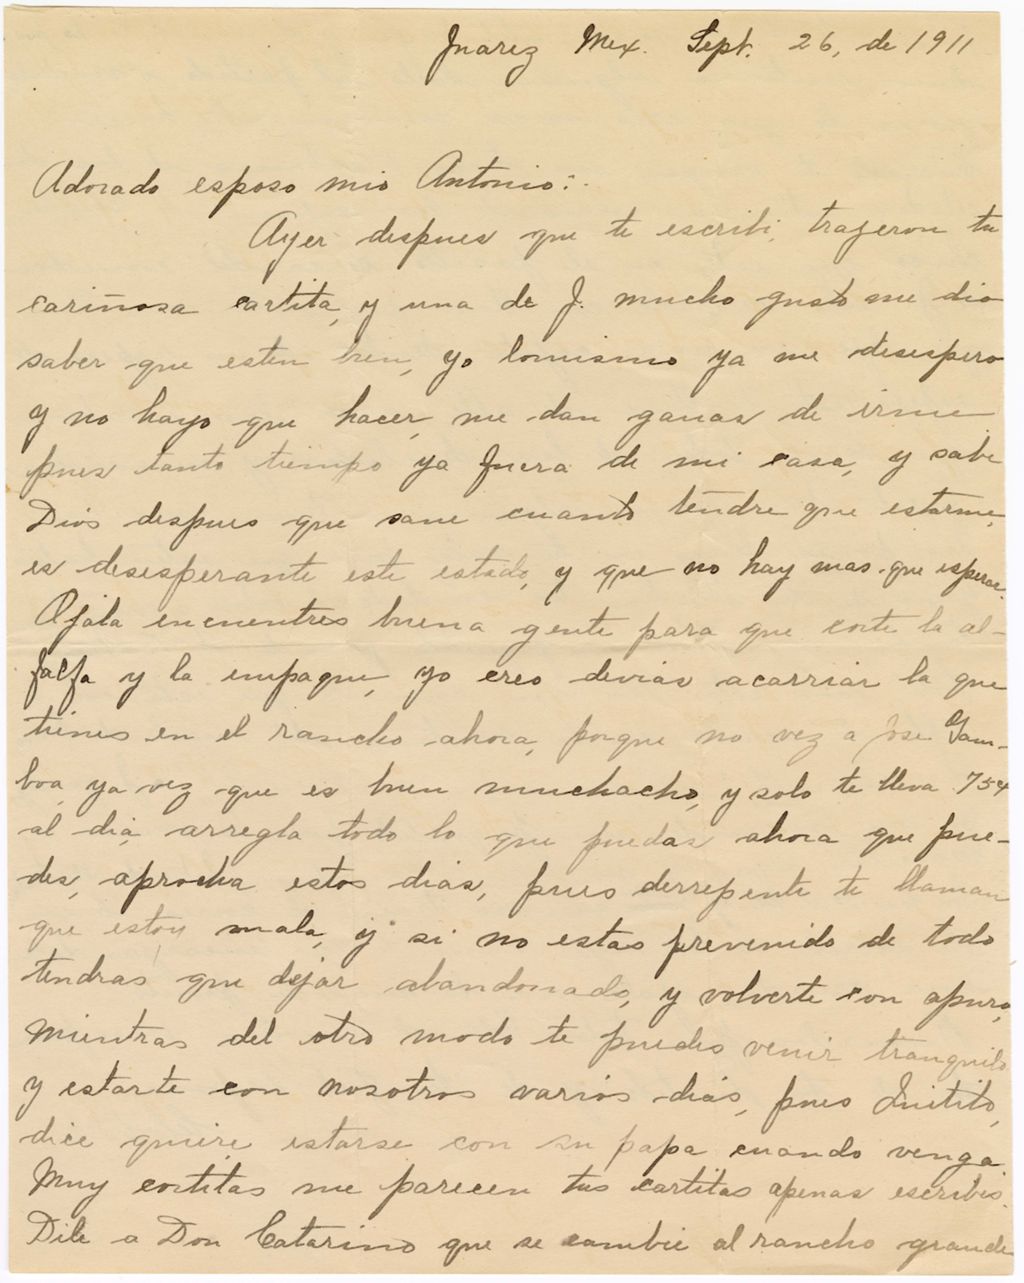 Juarez Mex. Sept. 26, de 1911
Adorado esposo mio Antonio:.
Ayer despues que te escribi, trajeron tu
cariñosa cartita, y una de J. mucho gusto me dio
saber que esten bien, yo lomismo ya me desespero
y no hayo que hacer, me dan ganas de irme
pues tanto tiempo ya fuera de mi casa, y sabe
Dios despues que sane cuanto tendre que estarme,
es desesperante este estado, y que no hay mas que esperar.
Ojala encuentres buena gente para que corte la al-
falfa y la empaque, yo creo devias acarriar la que
tienes en el rancho ahora, porque no vez a Jose Gam-
boa, ya vez que es buen muchacho, y solo te lleva 75¢
al dia, arregla todo lo que puedas ahora que pue-
des, aprocha estos dias, pues derrepente te llaman
que estoy mala, y si no estas prevenido de todo
tendras que dejar abandonado, y volverte con apuro,
mientras del otro modo te puedes venir tranquilo
y estarte con nosotros varios dias, pues
dice quiere estarse con su papa cuando venga.
Muy cortitas me parecen tus cartitas apenas escribes.
Dile a Don Catarino que se cambie al rancho grande